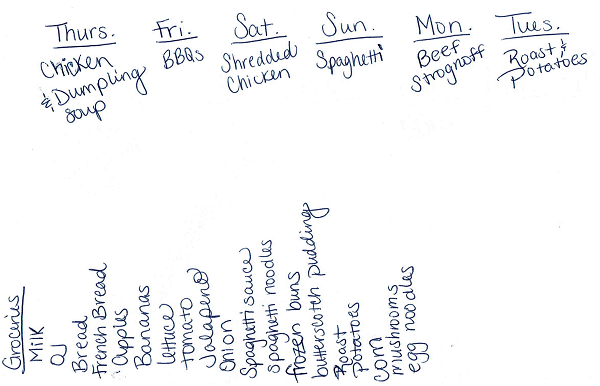 Thurs.
Chicken
& Dumpling
Soup
Fri.
BBQs
Sat.
Shredded
Chicken
Sun.
Spaghetti
Mon.
Beef
Strognoff
Tues.
Roast &
Potatoes
Groceries
Milk
OJ
Bread
French Bread
Apples
Bananas
lettuce
tomato
Jalapeno
Onion
Spaghetti sauce
spaghetti noodles
frozen buns
butterscotch pudding
Roast
Potatoes
corn
mushrooms
egg noodles